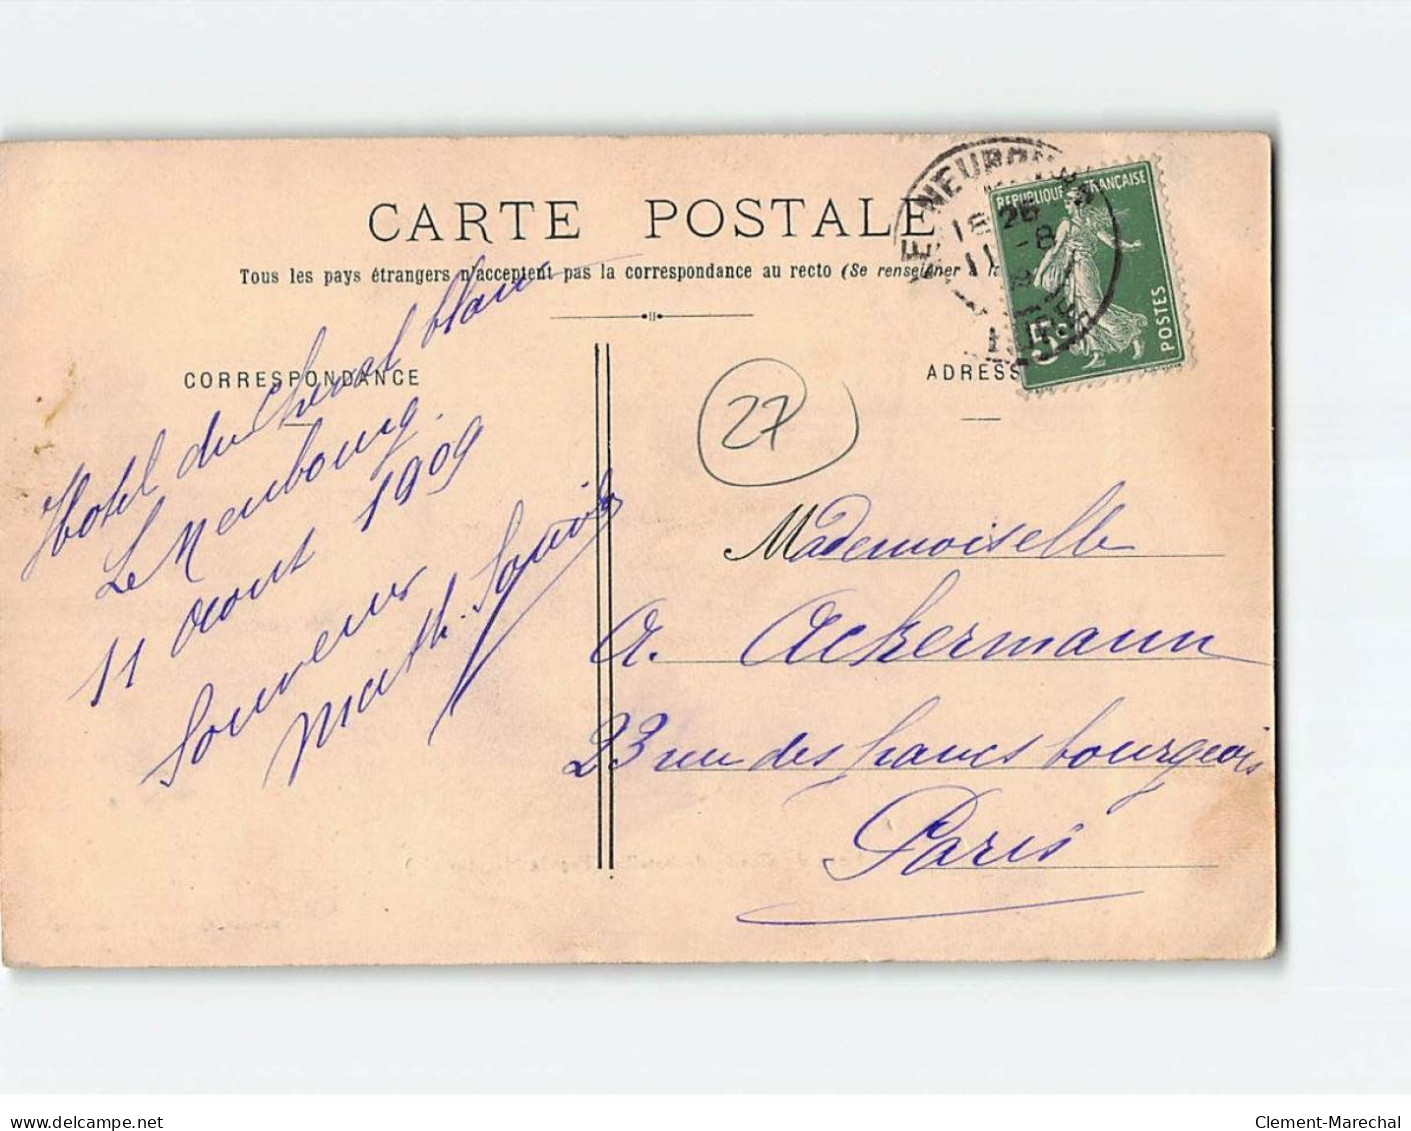 CARTE POSTALE
Tous les pays étrangers n'acceptent pas la correspondance au recto (Se renseigner à la
CORRESPONDANCE
ADRESS
RÉPUBLIQUE FRANÇAISE
POSTES
5c
LE NEUBOURG
18 25
11 -8
EURE
27
Hotel du Cheval blanc
Le Neubourg.
11 Aout 1909
Souvenir
Math.
Mademoiselle
A. Ackermann
23 rue des francs bourgeois
Paris
www.delcampe.net
Clement-Marechal